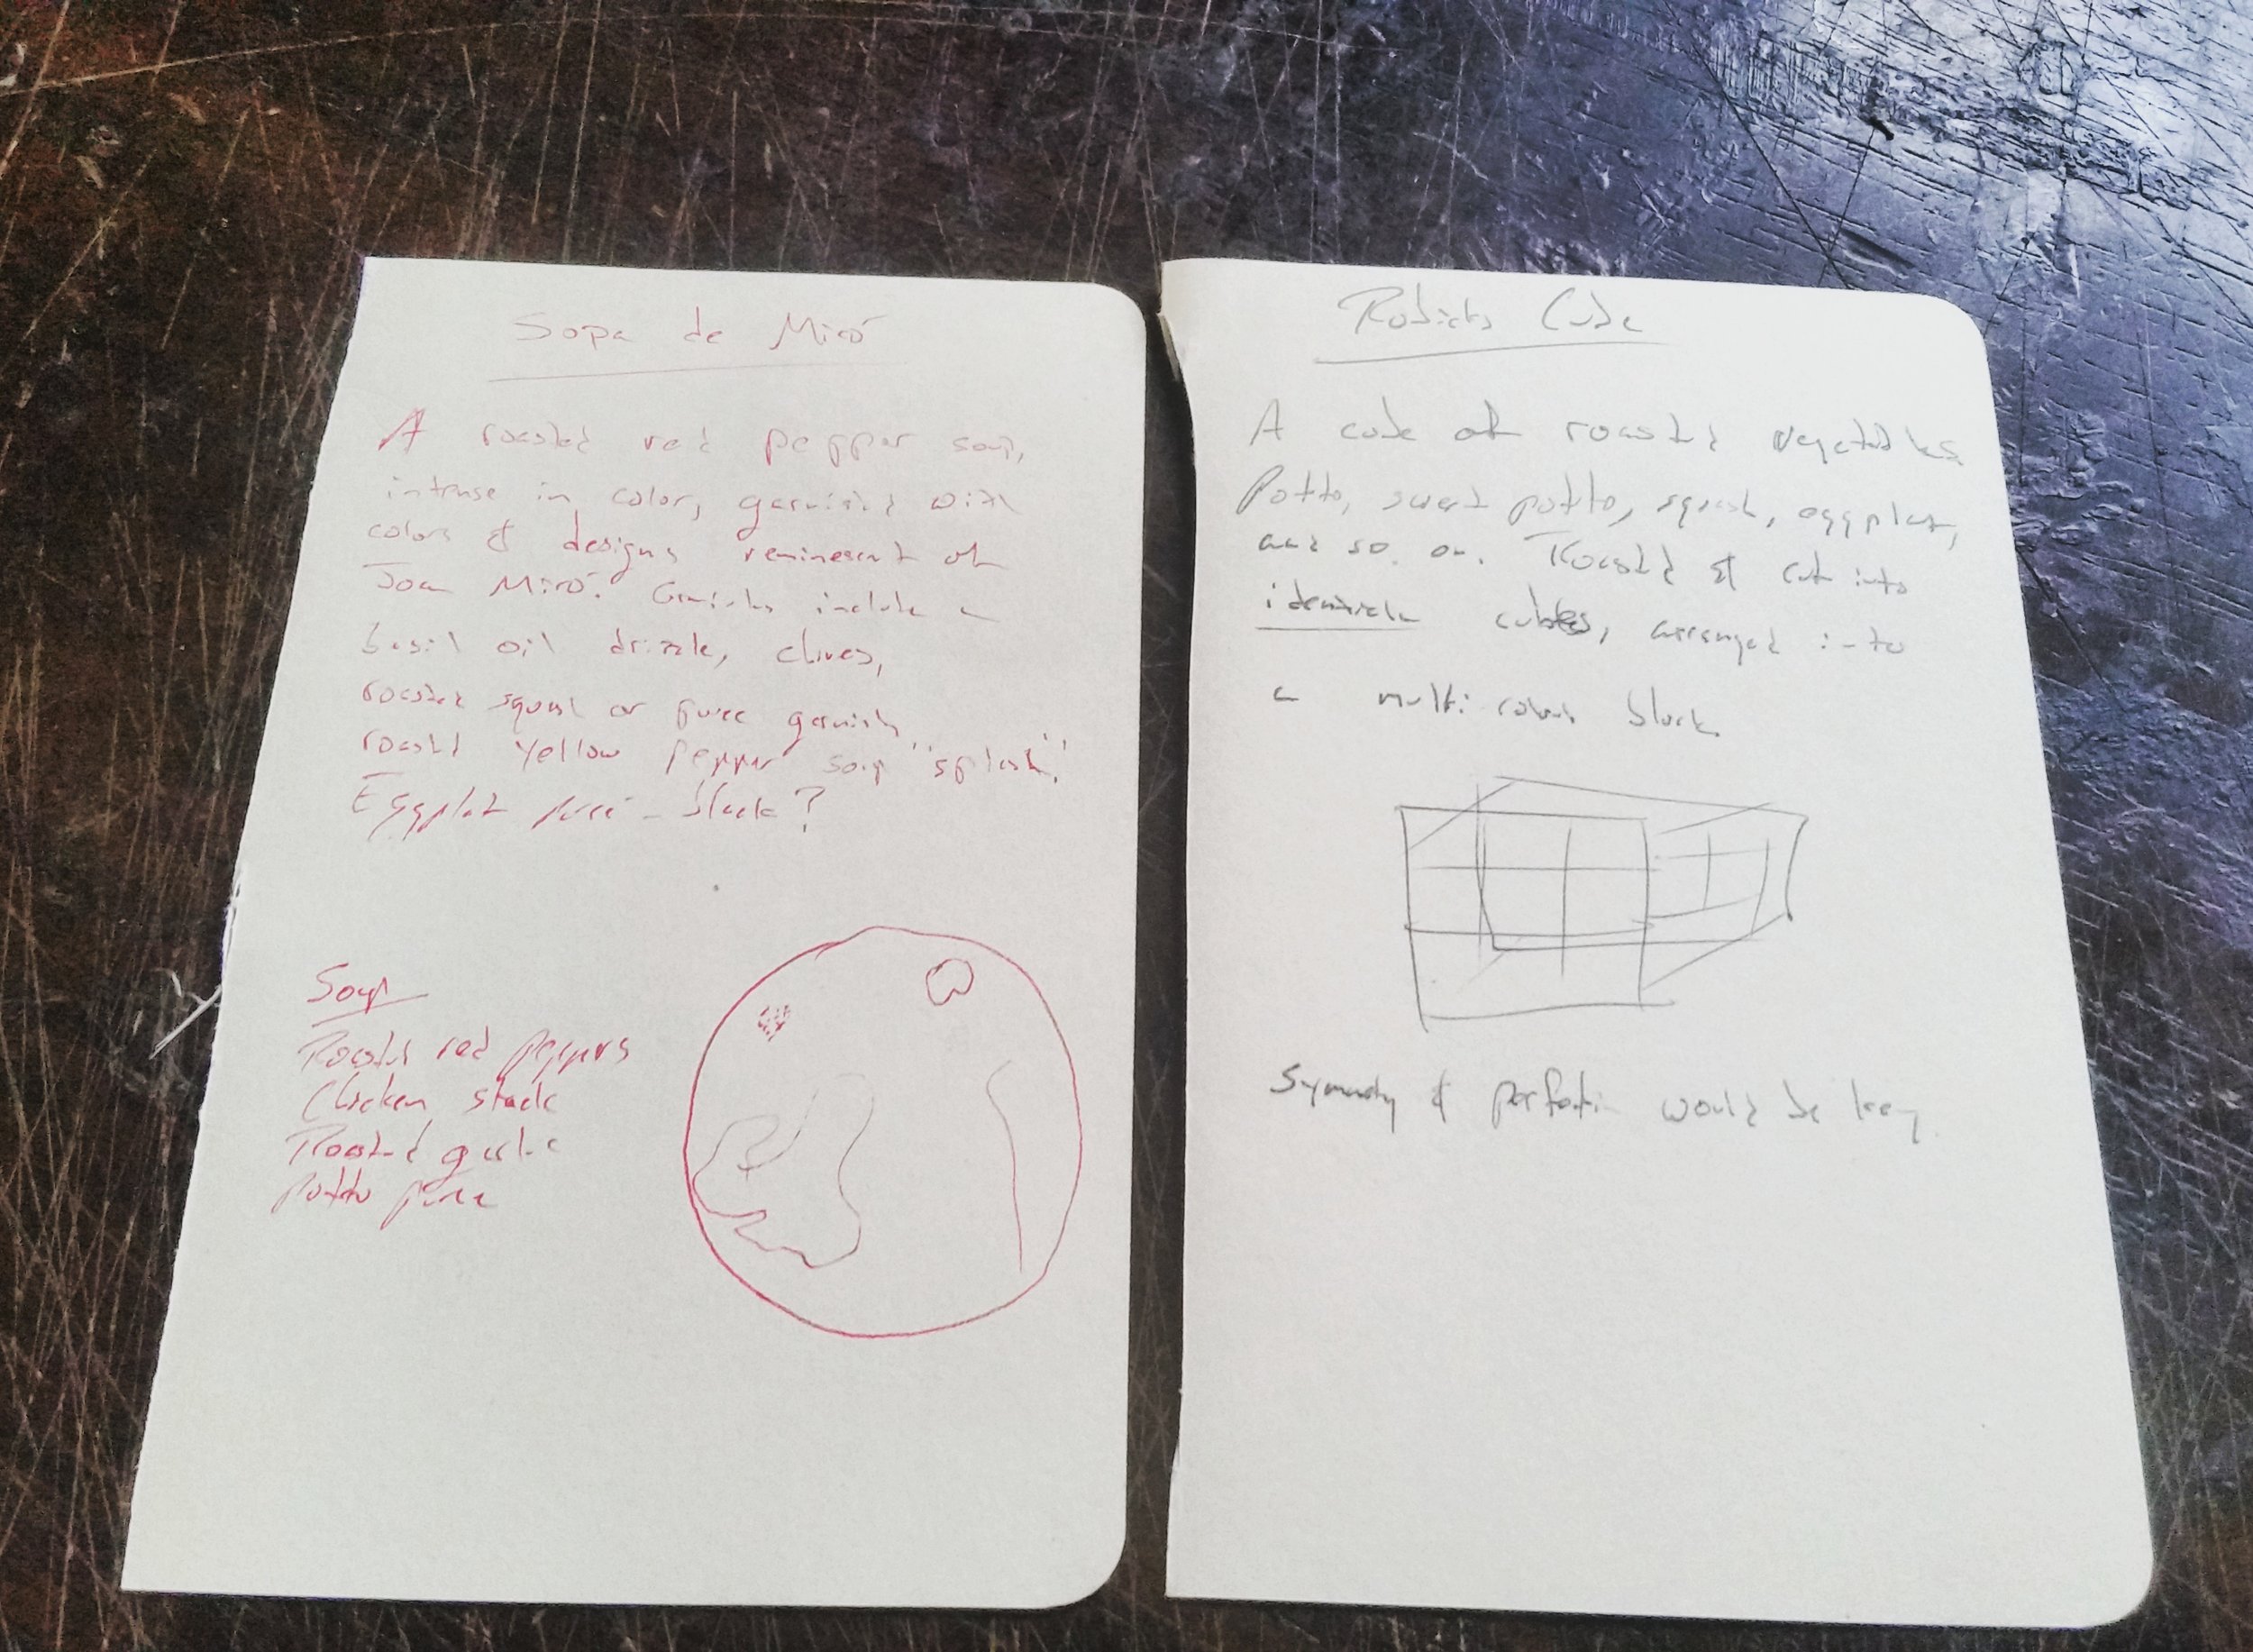 Sopa de Miró
A roasted red pepper soup,
intense in color, garnished with
colors & designs reminescent of
Joan Miró. Garnishes include a
basil oil drizzle, chives,
roasted squash or puree garnish,
roasted yellow pepper soup "splash".
Eggplant pureé - black?
Soup
Roasted red peppers
Chicken stock
Roasted garlic
Potato puree
Rubicks Cube
A cube of roasted vegetables.
Potato, sweet potato, squash, eggplant,
and so on. Roasted & cut into
cubes, arranged into
a multi colour block.
Symmetry & perfection would be key.